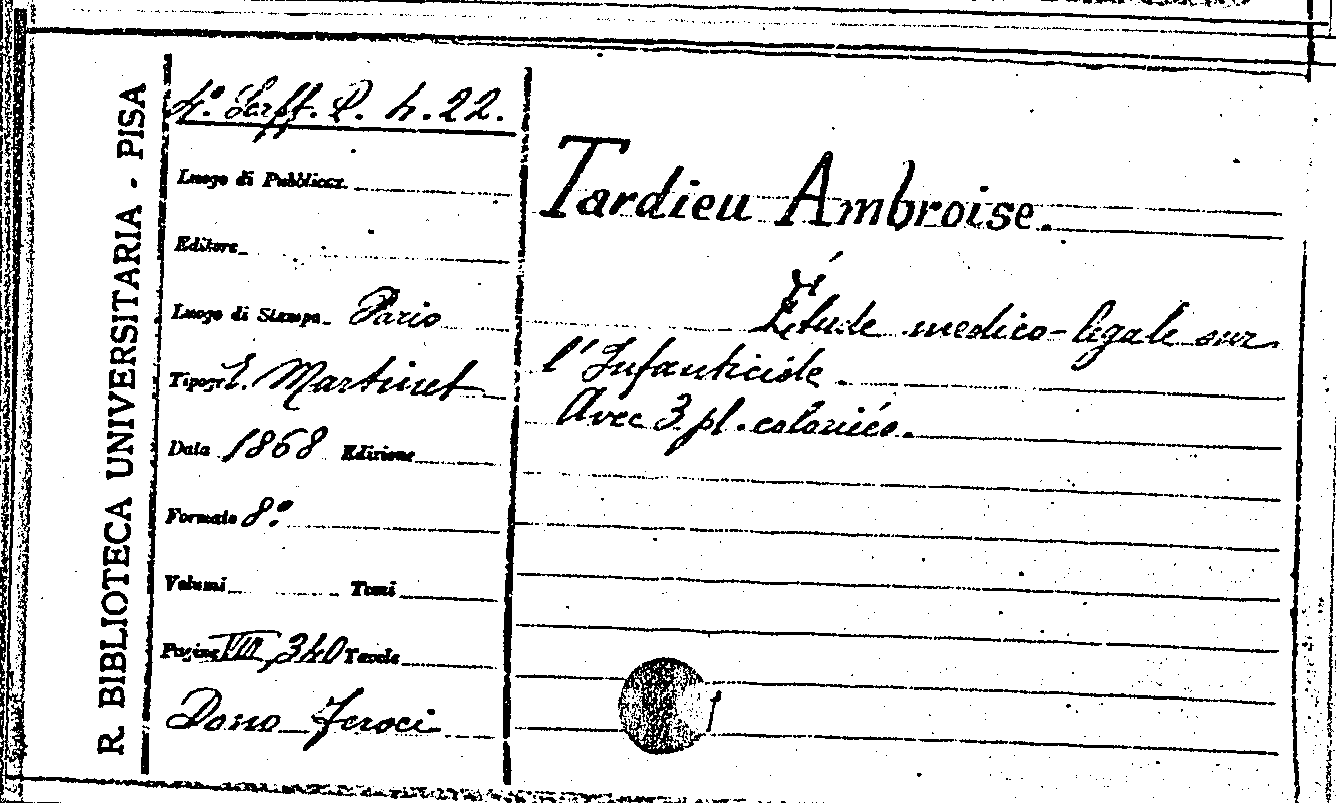 R. BIBLIOTECA UNIVERSITARIA - PISA
4.° Scaff. D. 4. 22.
Luogo di Pubblicaz.
Editore
Luogo di Stampa Paris
Tipogr. E. Martinet
Data 1868 Edizione
Formato 8.°
Volumi Tomi
Pagine VIII, 340 Tavole
Dono Feroci
Tardieu Ambroise.
Étude medico-légale sur
l'Infanticide
Avec 3 pl. coloriés.